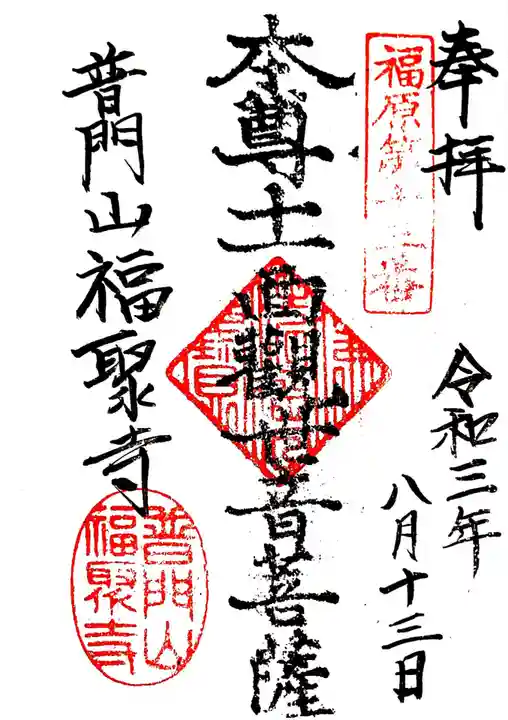 奉拝
令和三年
八月十三日
福原第十番
本尊十一面觀世音菩薩
普門山福聚寺
普門山
福聚寺